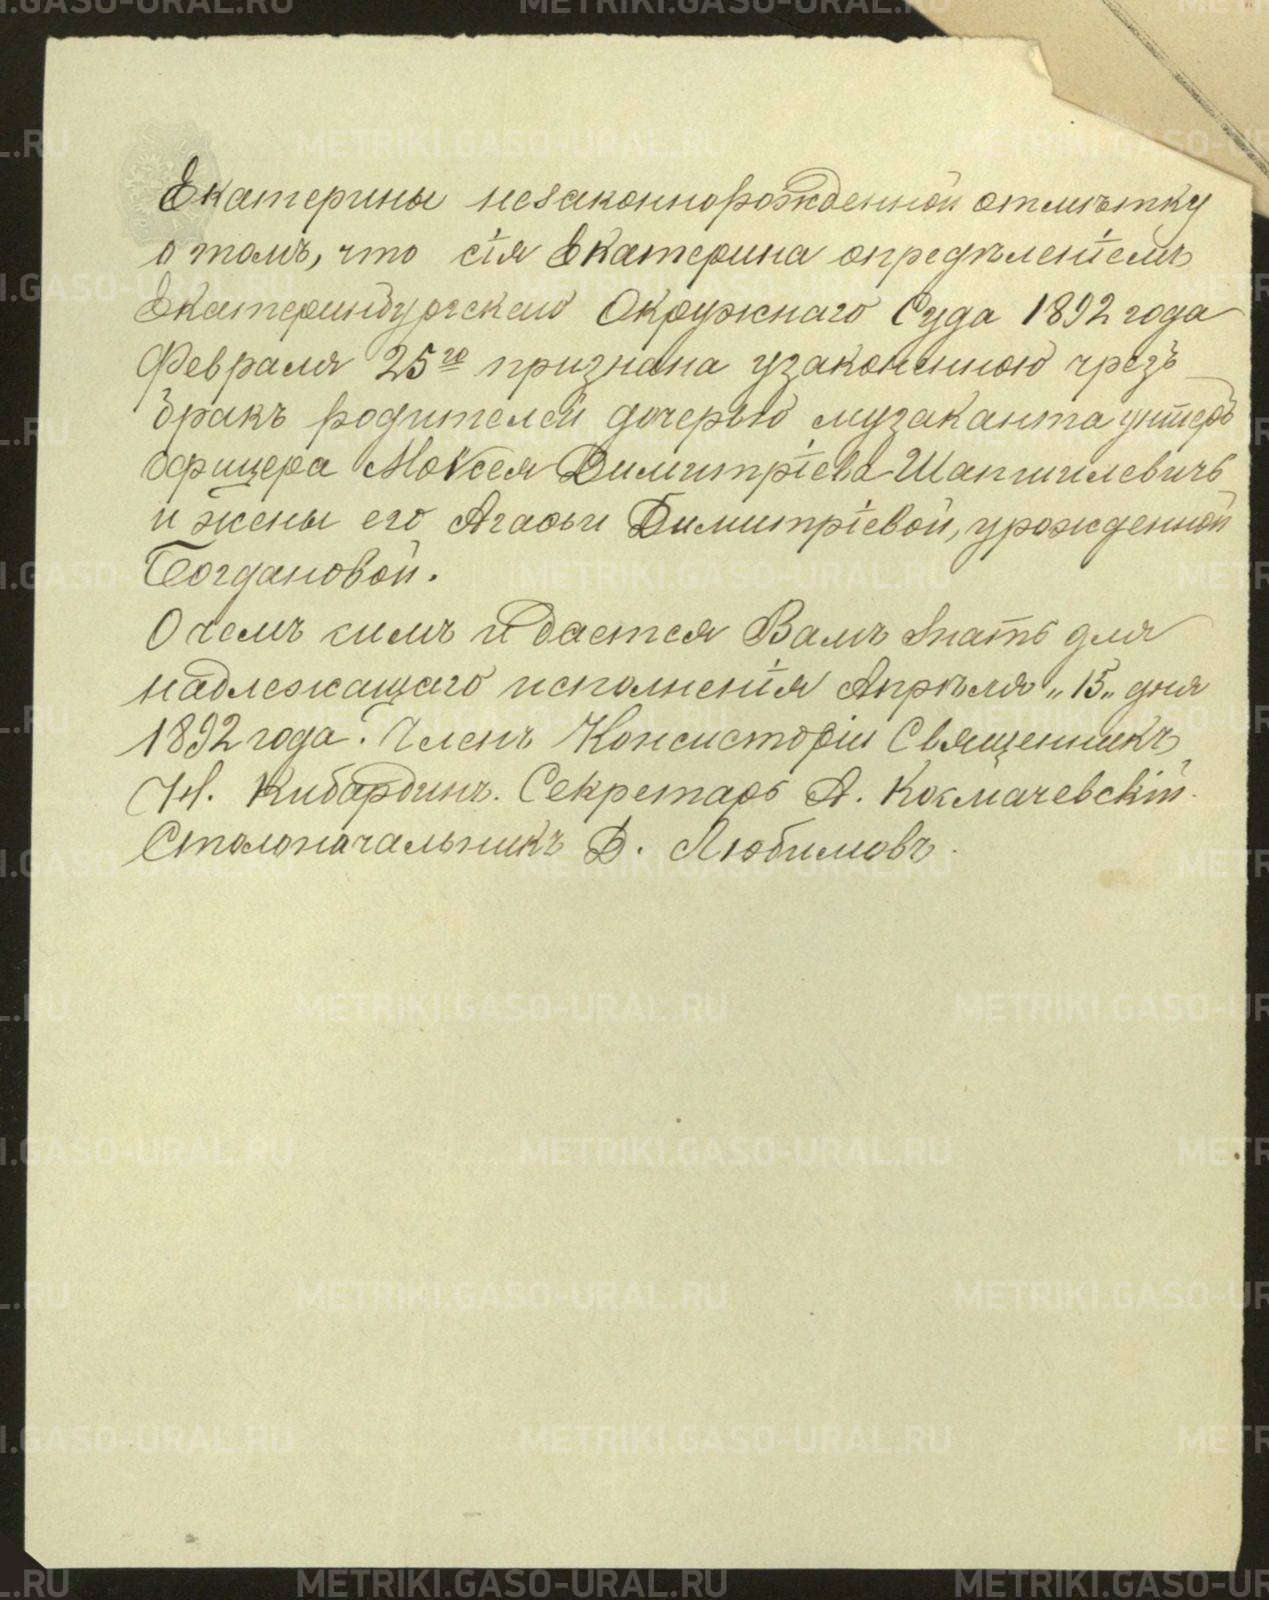 Екатерины незаконнорожденной отмѣтку
о томъ, что сія Екатерина опредѣленіемъ
Екатеринбургскаго Окружнаго Суда 1892 года
Февраля 25го признана узаконенною чрезъ
бракъ родителей дочерью музаканта унтеръ
офицера Мокея Димитріева Шапшилевичъ
и жены его Агафьи Димитріевой, урожденной
Богдановой.
О чемъ симъ и дается Вамъ знать для
надлежащаго исполненія Апрѣля „15„ дня
1892 года. Членъ Консисторіи Священникъ
Н. Кибардинъ. Секретарь А. Космачевскій.
Столоначальникъ Д. Любимовъ.